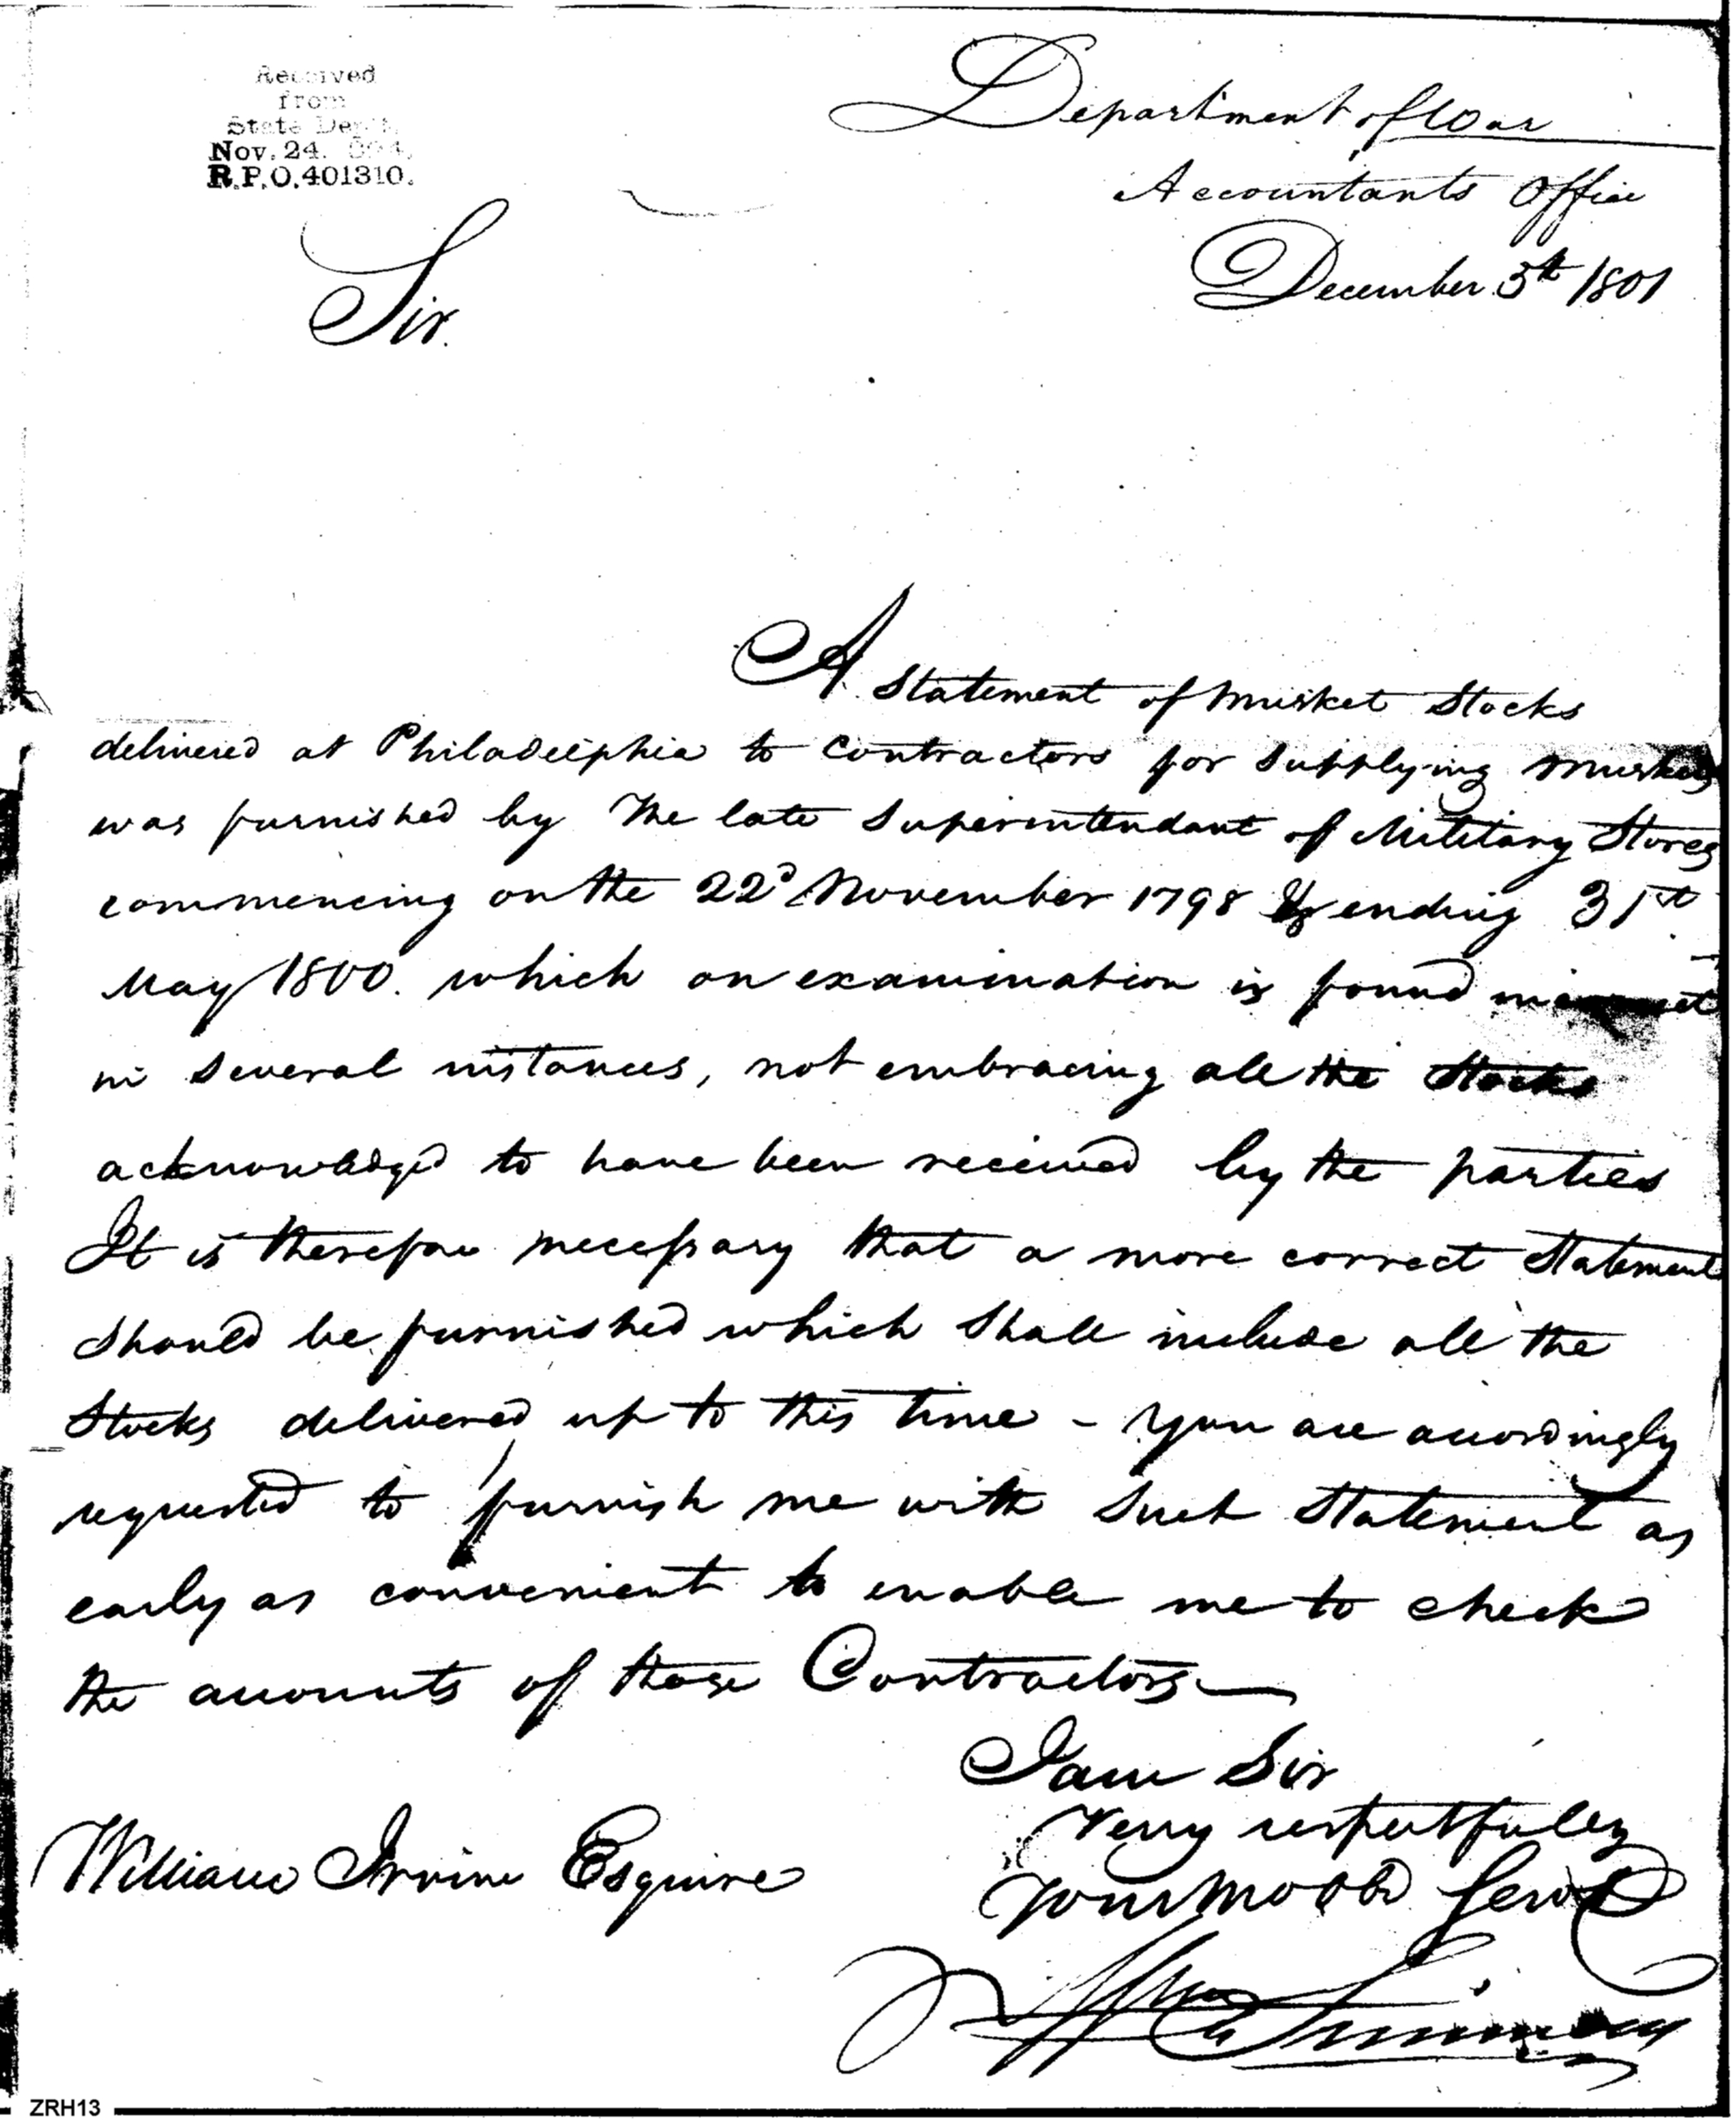 Received
from
State Dep't.
Nov. 24.
R.P.O. 401310.
Department of War
Accountants Office
December 5th 1801
Sir.
A Statement of Musket Stocks
delivered at Philadelphia to Contractors for supplying Muskets
was furnished by the late Superintendant of Military Stores
commencing on the 22d November 1798 & ending 31st
May 1800. which on examination is found
in several instances, not embracing all the Stocks
acknowledged to have been received by the parties
It is therefore necessary that a more correct Statement
should be furnished which shall include all the
Stocks delivered up to this time - you are accordingly
requested to furnish me with such Statement as
early as convenient to enable me to check
the accounts of those Contractors
I am Sir
Very respectfully
Your Mo Ob Servt
William Irvine Esquire
Wm Simmons
ZRH13